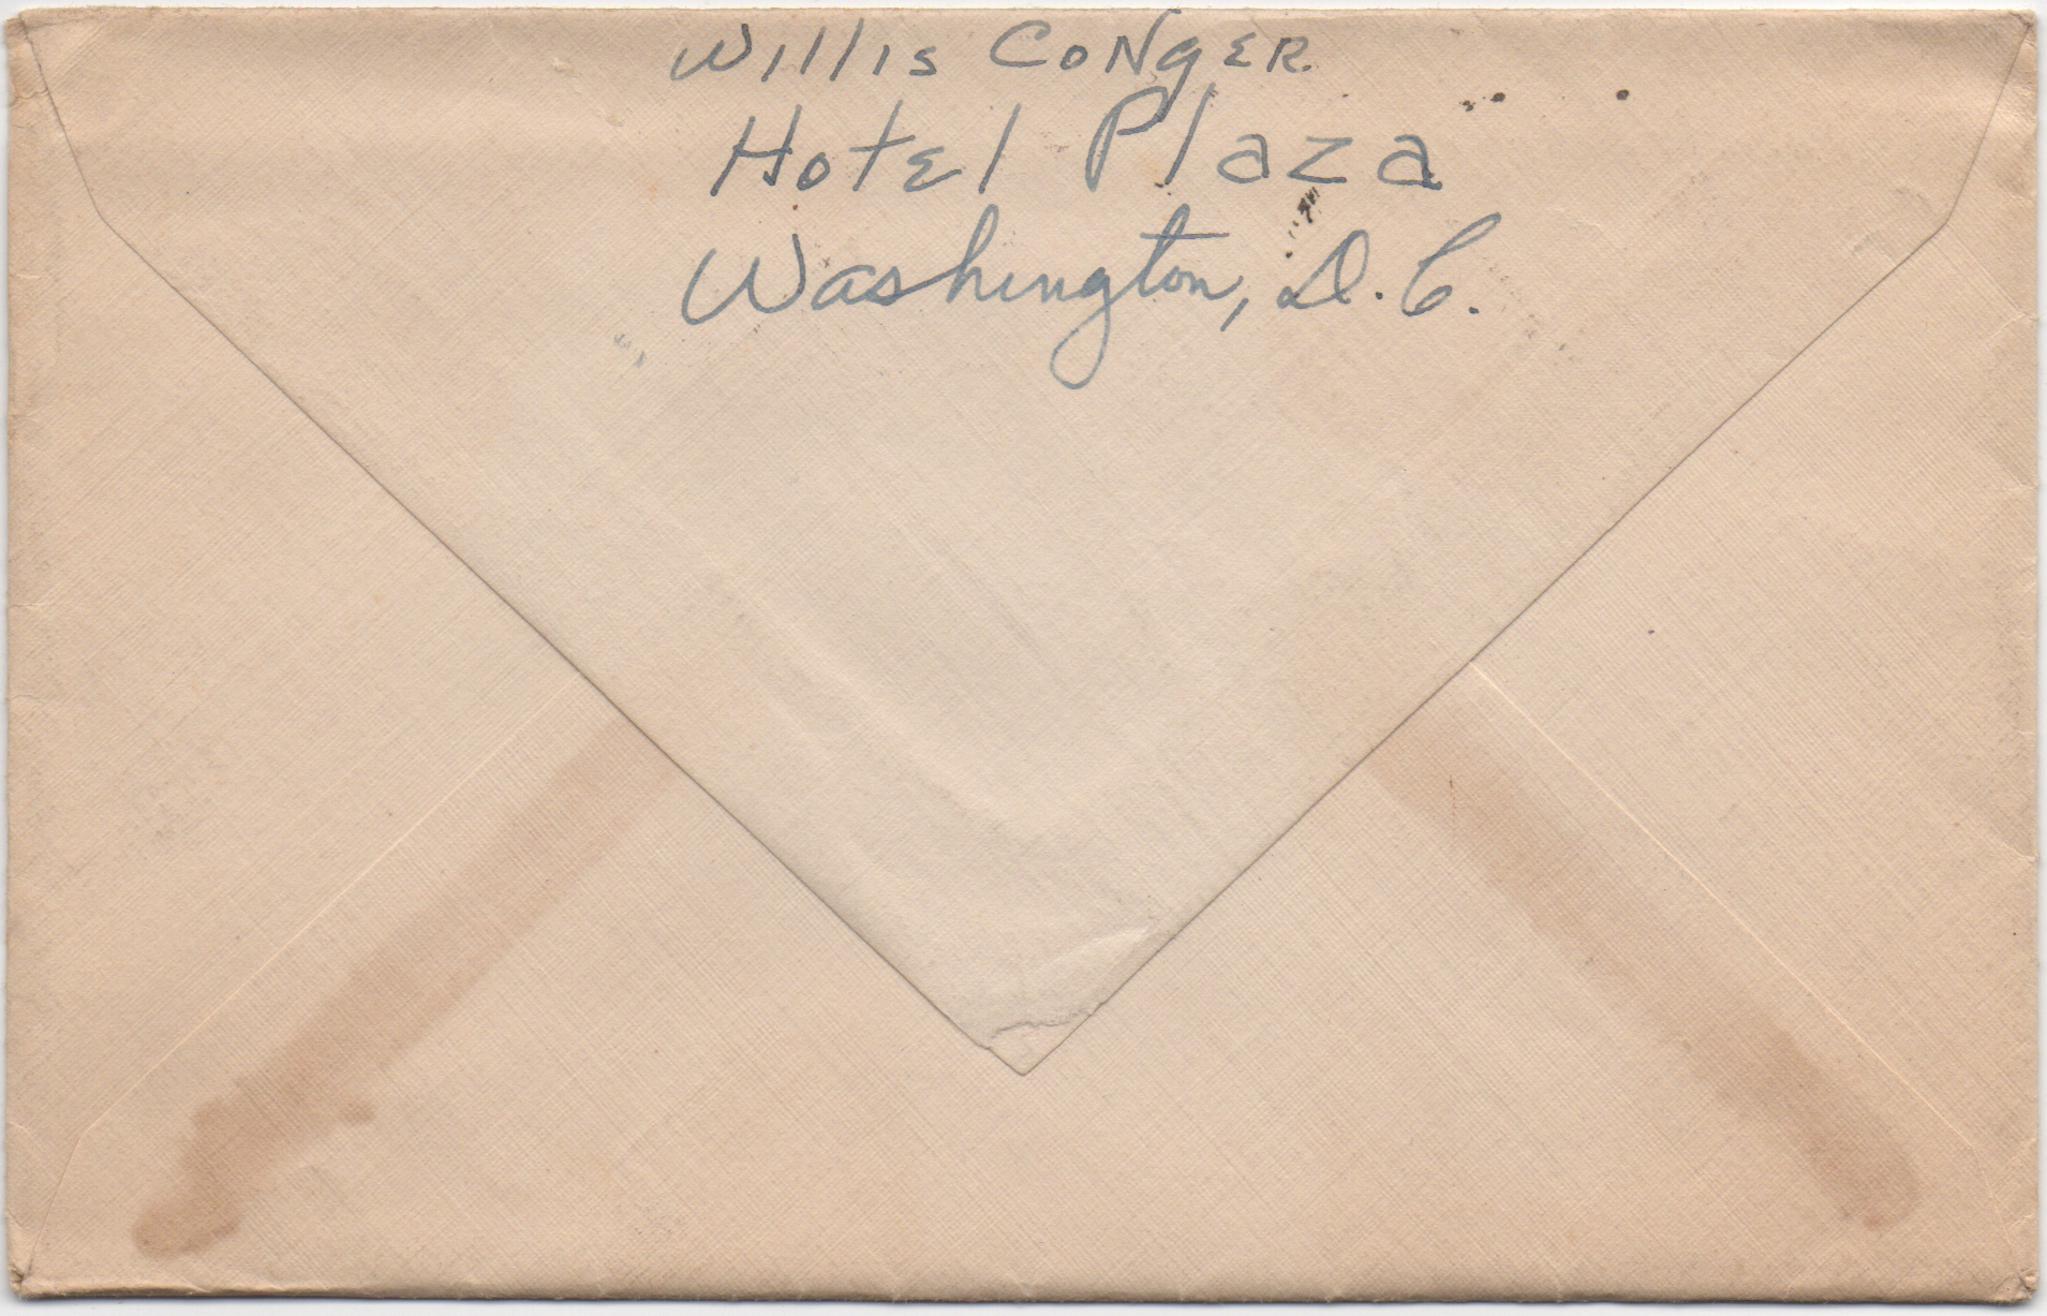 Willis Conger
Hotel Plaza
Washington, D.C.